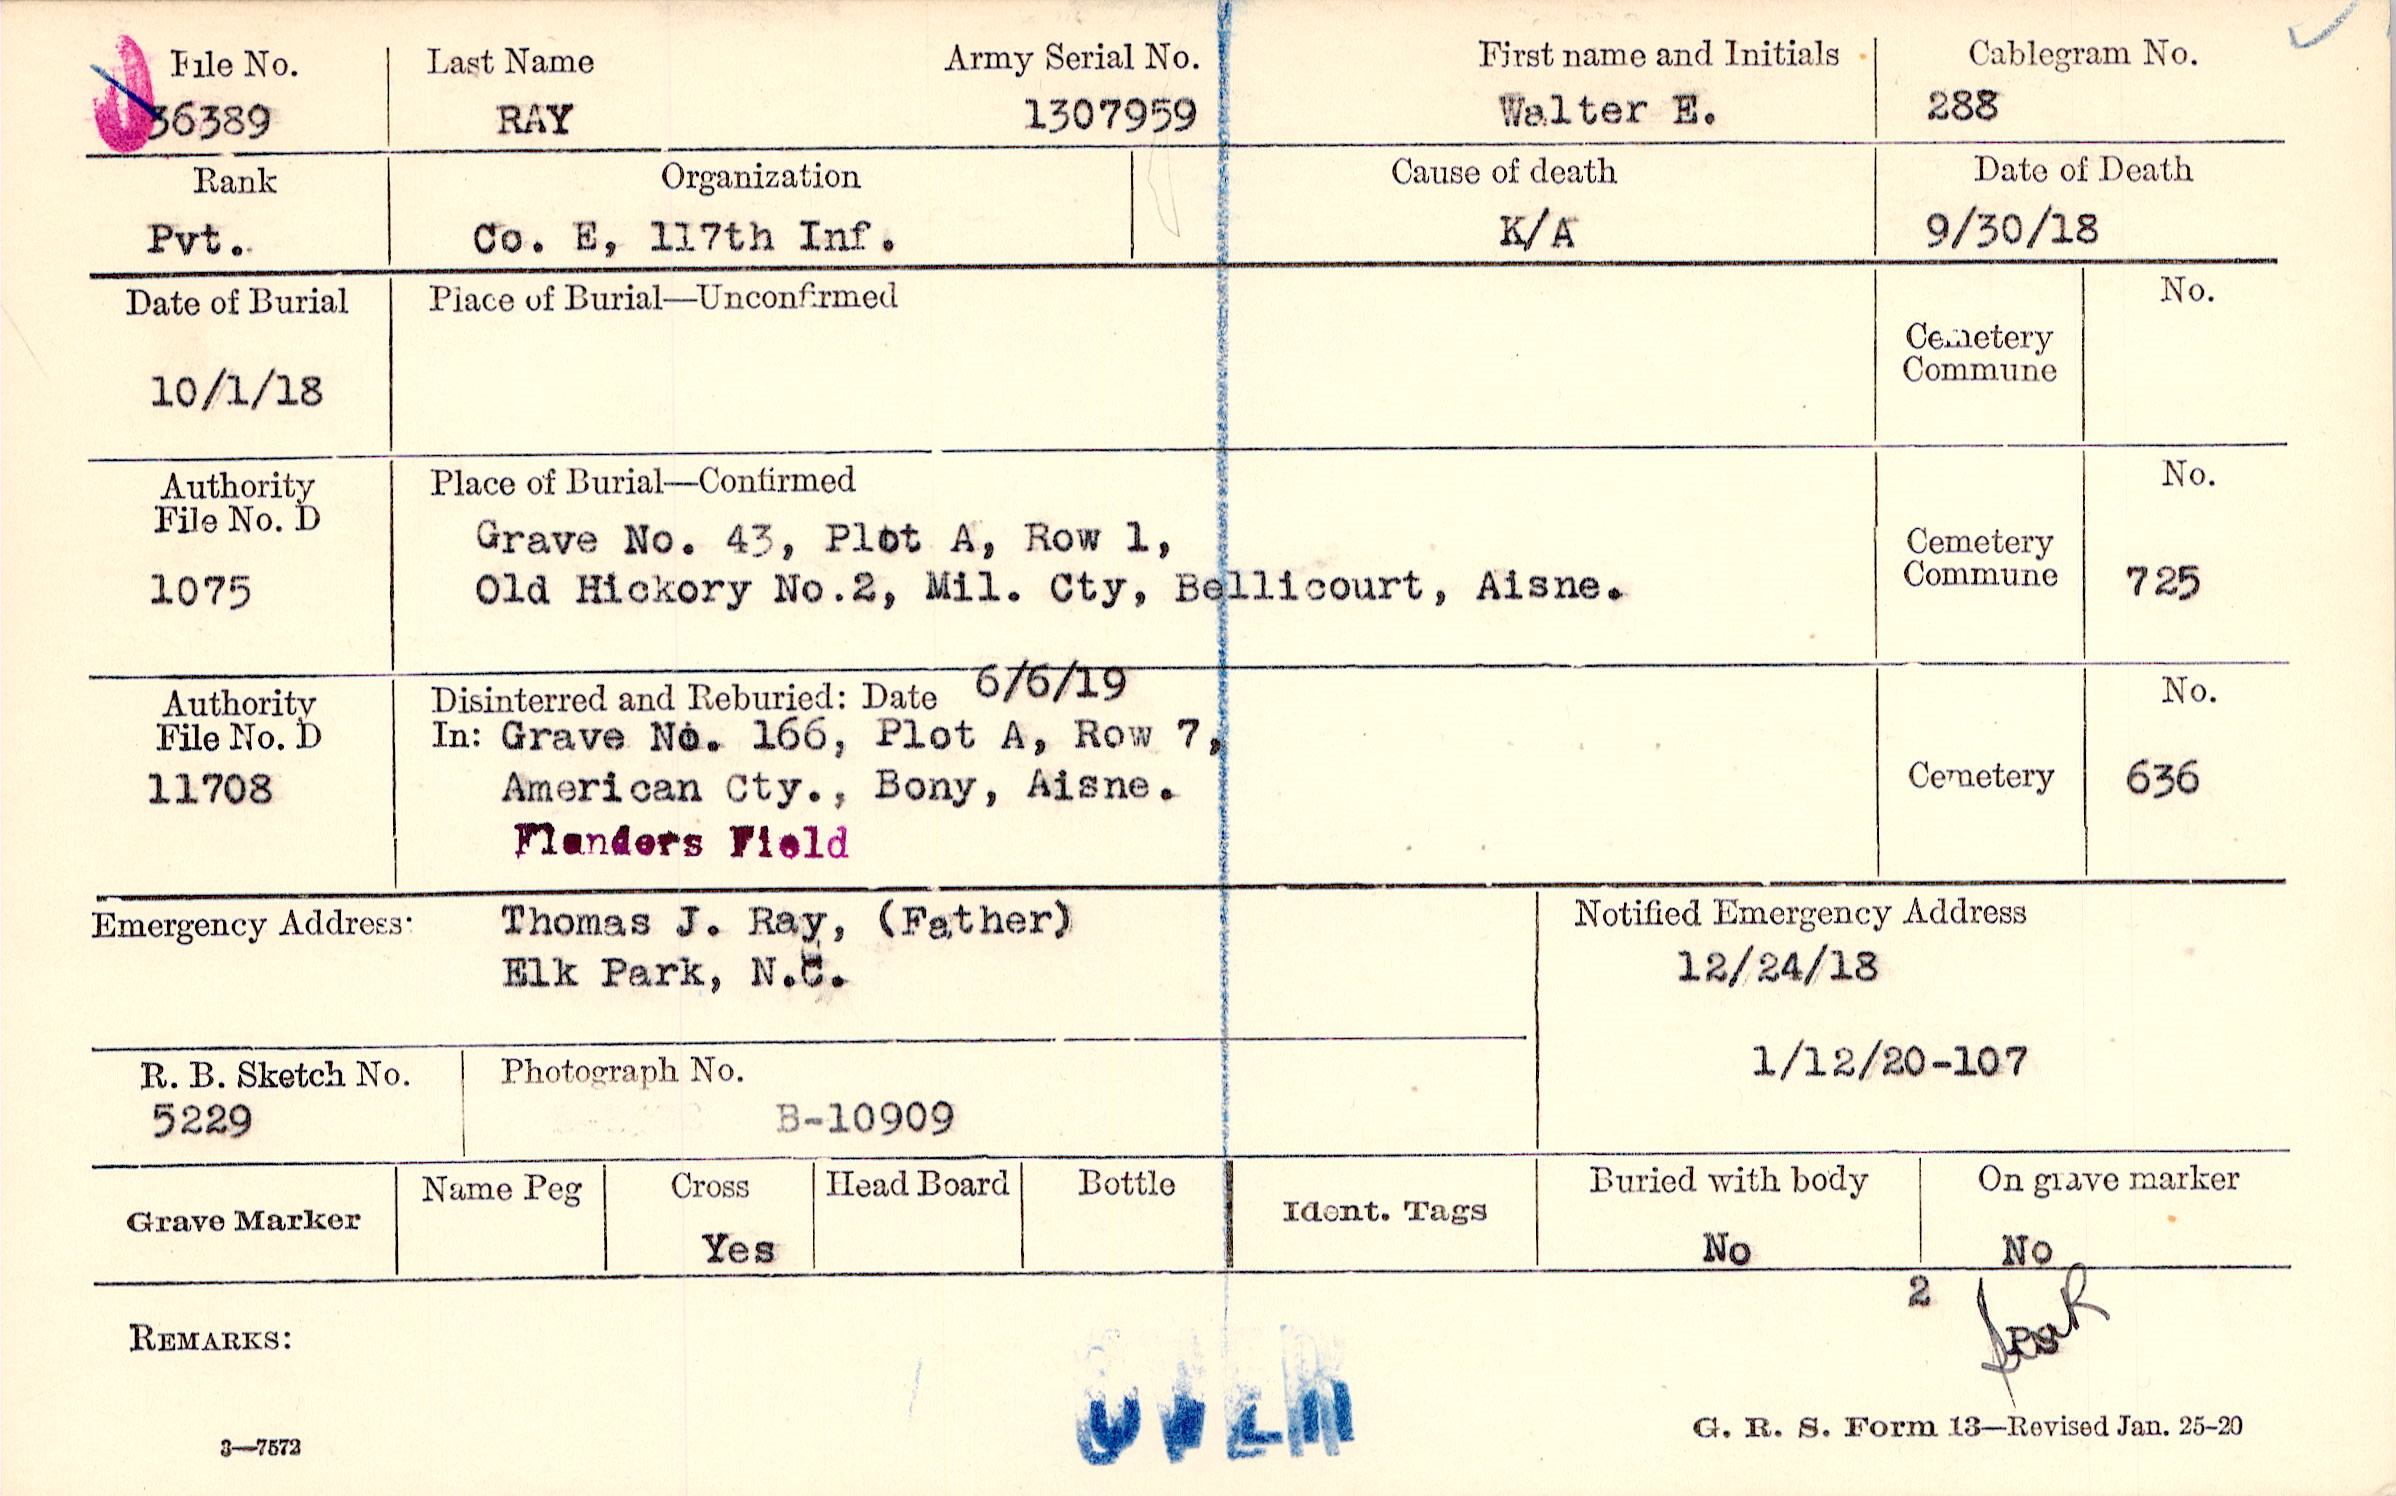 File No. Last Name Army Serial No. First name and Initials Cablegram No.
36389 RAY 1307959 Walter E. 288
Rank Organization Cause of death Date of Death
Pvt. Co. E, 117th Inf. K/A 9/30/18
Date of Burial Place of Burial—Unconfirmed No.
Cemetery
Commune
10/1/18
Authority Place of Burial—Confirmed No.
File No. D
Grave No. 43, Plot A, Row 1, Cemetery
1075 Old Hickory No.2, Mil. Cty, Bellicourt, Aisne. Commune 725
Authority Disinterred and Reburied: Date 6/6/19 No.
File No. D In: Grave No. 166, Plot A, Row 7,
11708 American Cty., Bony, Aisne. Cemetery 636
Flanders Field
Emergency Address: Thomas J. Ray, (Father) Notified Emergency Address
Elk Park, N.C. 12/24/18
R. B. Sketch No. Photograph No. 1/12/20-107
5229 B-10909
Grave Marker Name Peg Cross Head Board Bottle Ident. Tags Buried with body On grave marker
Yes No No
2
REMARKS: PS
OVER
3—7572 G. R. S. Form 13—Revised Jan. 25-20